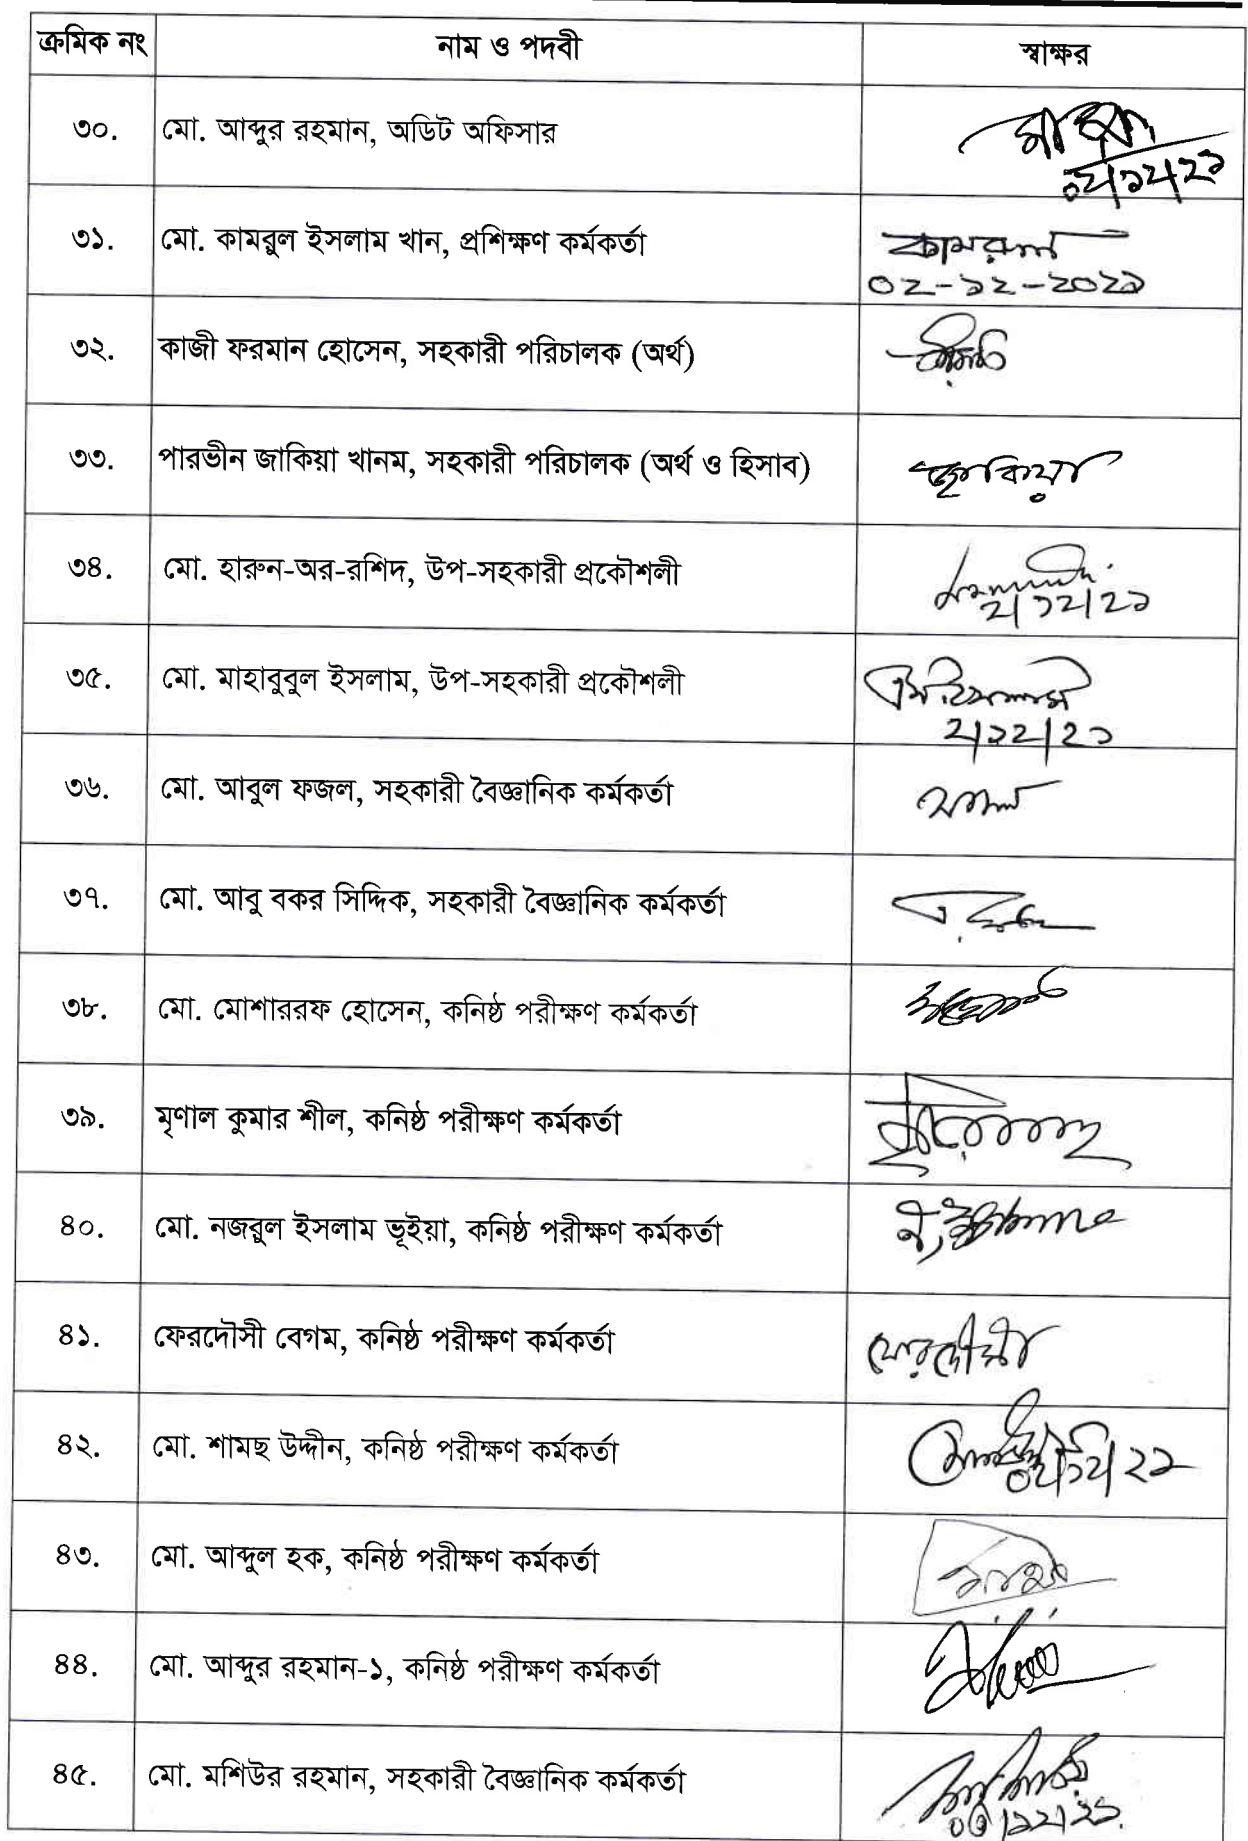 ক্রমিক নং নাম ও পদবী স্বাক্ষর
৩০. মো. আব্দুর রহমান, অডিট অফিসার
০২/১২/২১
৩১. মো. কামরুল ইসলাম খান, প্রশিক্ষণ কর্মকর্তা কামরুল
০২-১২-২০২১
৩২. কাজী ফরমান হোসেন, সহকারী পরিচালক (অর্থ)
৩৩. পারভীন জাকিয়া খানম, সহকারী পরিচালক (অর্থ ও হিসাব) জাকিয়া
৩৪. মো. হারুন-অর-রশিদ, উপ-সহকারী প্রকৌশলী
2/১2/2১
৩৫. মো. মাহাবুবুল ইসলাম, উপ-সহকারী প্রকৌশলী
2/১2/2১
৩৬. মো. আবুল ফজল, সহকারী বৈজ্ঞানিক কর্মকর্তা
৩৭. মো. আবু বকর সিদ্দিক, সহকারী বৈজ্ঞানিক কর্মকর্তা
৩৮. মো. মোশাররফ হোসেন, কনিষ্ঠ পরীক্ষণ কর্মকর্তা
৩৯. মৃণাল কুমার শীল, কনিষ্ঠ পরীক্ষণ কর্মকর্তা
৪০. মো. নজরুল ইসলাম ভূইয়া, কনিষ্ঠ পরীক্ষণ কর্মকর্তা
৪১. ফেরদৌসী বেগম, কনিষ্ঠ পরীক্ষণ কর্মকর্তা ফেরদৌসী
৪২. মো. শামছ উদ্দীন, কনিষ্ঠ পরীক্ষণ কর্মকর্তা
০২/১২/২১
৪৩. মো. আব্দুল হক, কনিষ্ঠ পরীক্ষণ কর্মকর্তা
৪৪. মো. আব্দুর রহমান-১, কনিষ্ঠ পরীক্ষণ কর্মকর্তা
৪৫. মো. মশিউর রহমান, সহকারী বৈজ্ঞানিক কর্মকর্তা